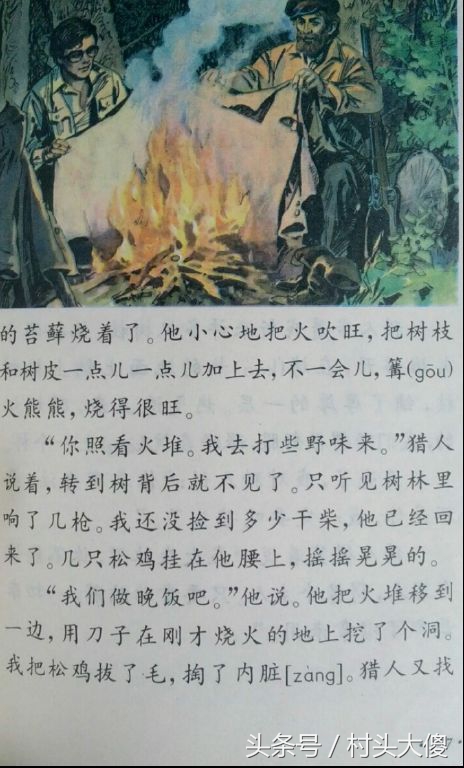 的苔藓烧着了。他小心地把火吹旺，把树枝
和树皮一点儿一点儿加上去，不一会儿，篝(gōu)
火熊熊，烧得很旺。
“你照看火堆。我去打些野味来。”猎人
说着，转到树背后就不见了。只听见树林里
响了几枪。我还没捡到多少干柴，他已经回
来了。几只松鸡挂在他腰上，摇摇晃晃的。
“我们做晚饭吧。”他说。他把火堆移到
一边，用刀子在刚才烧火的地上挖了个洞。
我把松鸡拔了毛，掏了内脏[zàng]。猎人又找
头条号／村头大傻